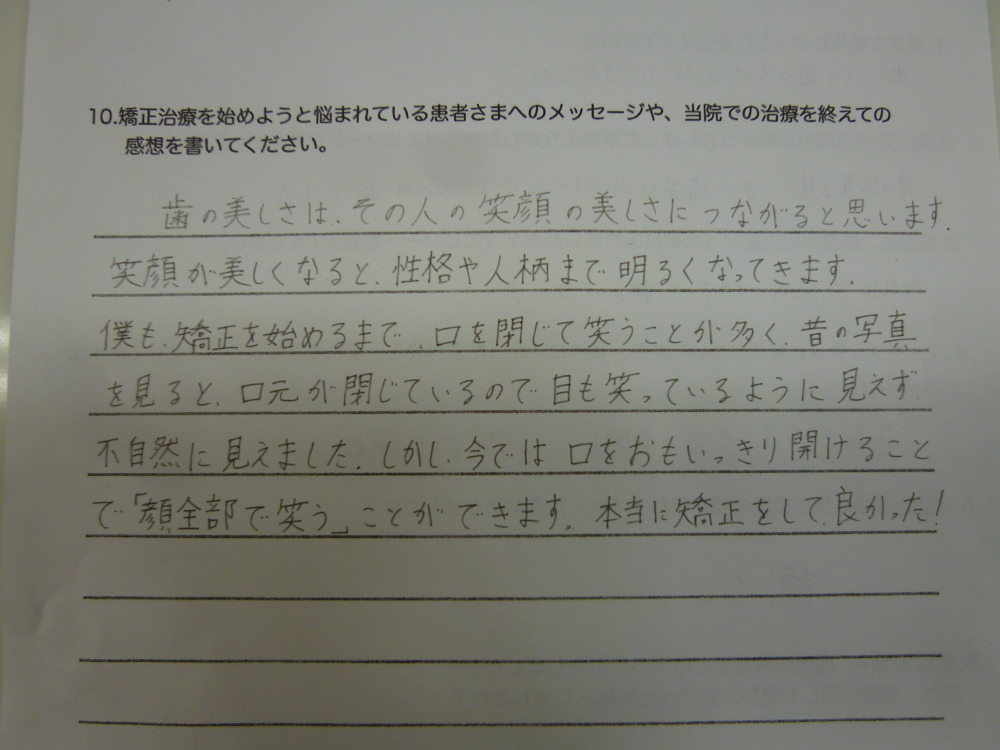 10.矯正治療を始めようと悩まれている患者さまへのメッセージや、当院での治療を終えての
感想を書いてください。
歯の美しさは、その人の笑顔の美しさにつながると思います.
笑顔が美しくなると、性格や人柄まで明るくなってきます.
僕も、矯正を始めるまで、口を閉じて笑うことが多く、昔の写真
を見ると、口元が閉じているので目も笑っているように見えず
不自然に見えました. しかし、今では口をおもいっきり開けること
で「顔全部で笑う」ことができます。本当に矯正をして、良かった!